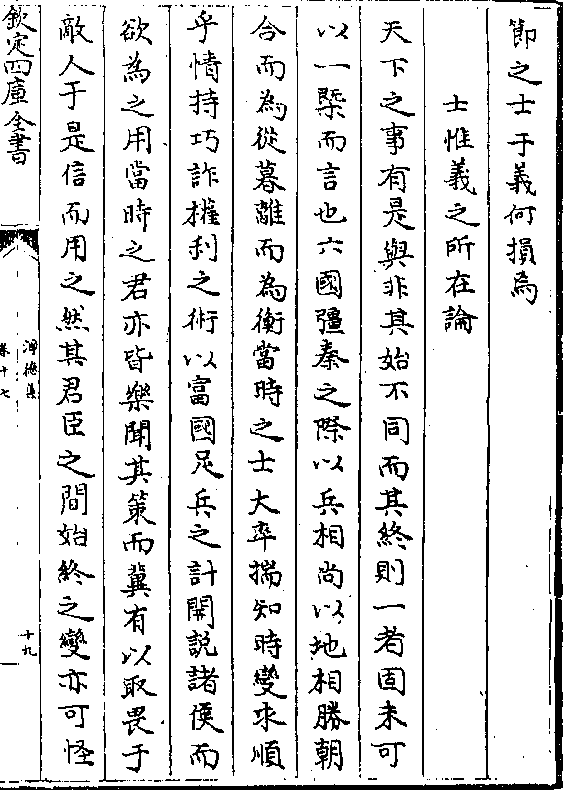 節之士于義何損焉
士惟義之所在論
天下之事有是與非其始不同而其終則一者固未可
以一槩而言也六國彊秦之際以兵相尚以地相勝朝
合而為從暮離而為衡當時之士大率揣知時變求順
乎情持巧詐權利之術以富國足兵之計開説諸侯而
欲為之用當時之君亦皆樂聞其策而冀有以取畏于
敵人于是信而用之然其君臣之間始終之變亦可怪
欽定四庫全書
淨德集
卷十七
十九